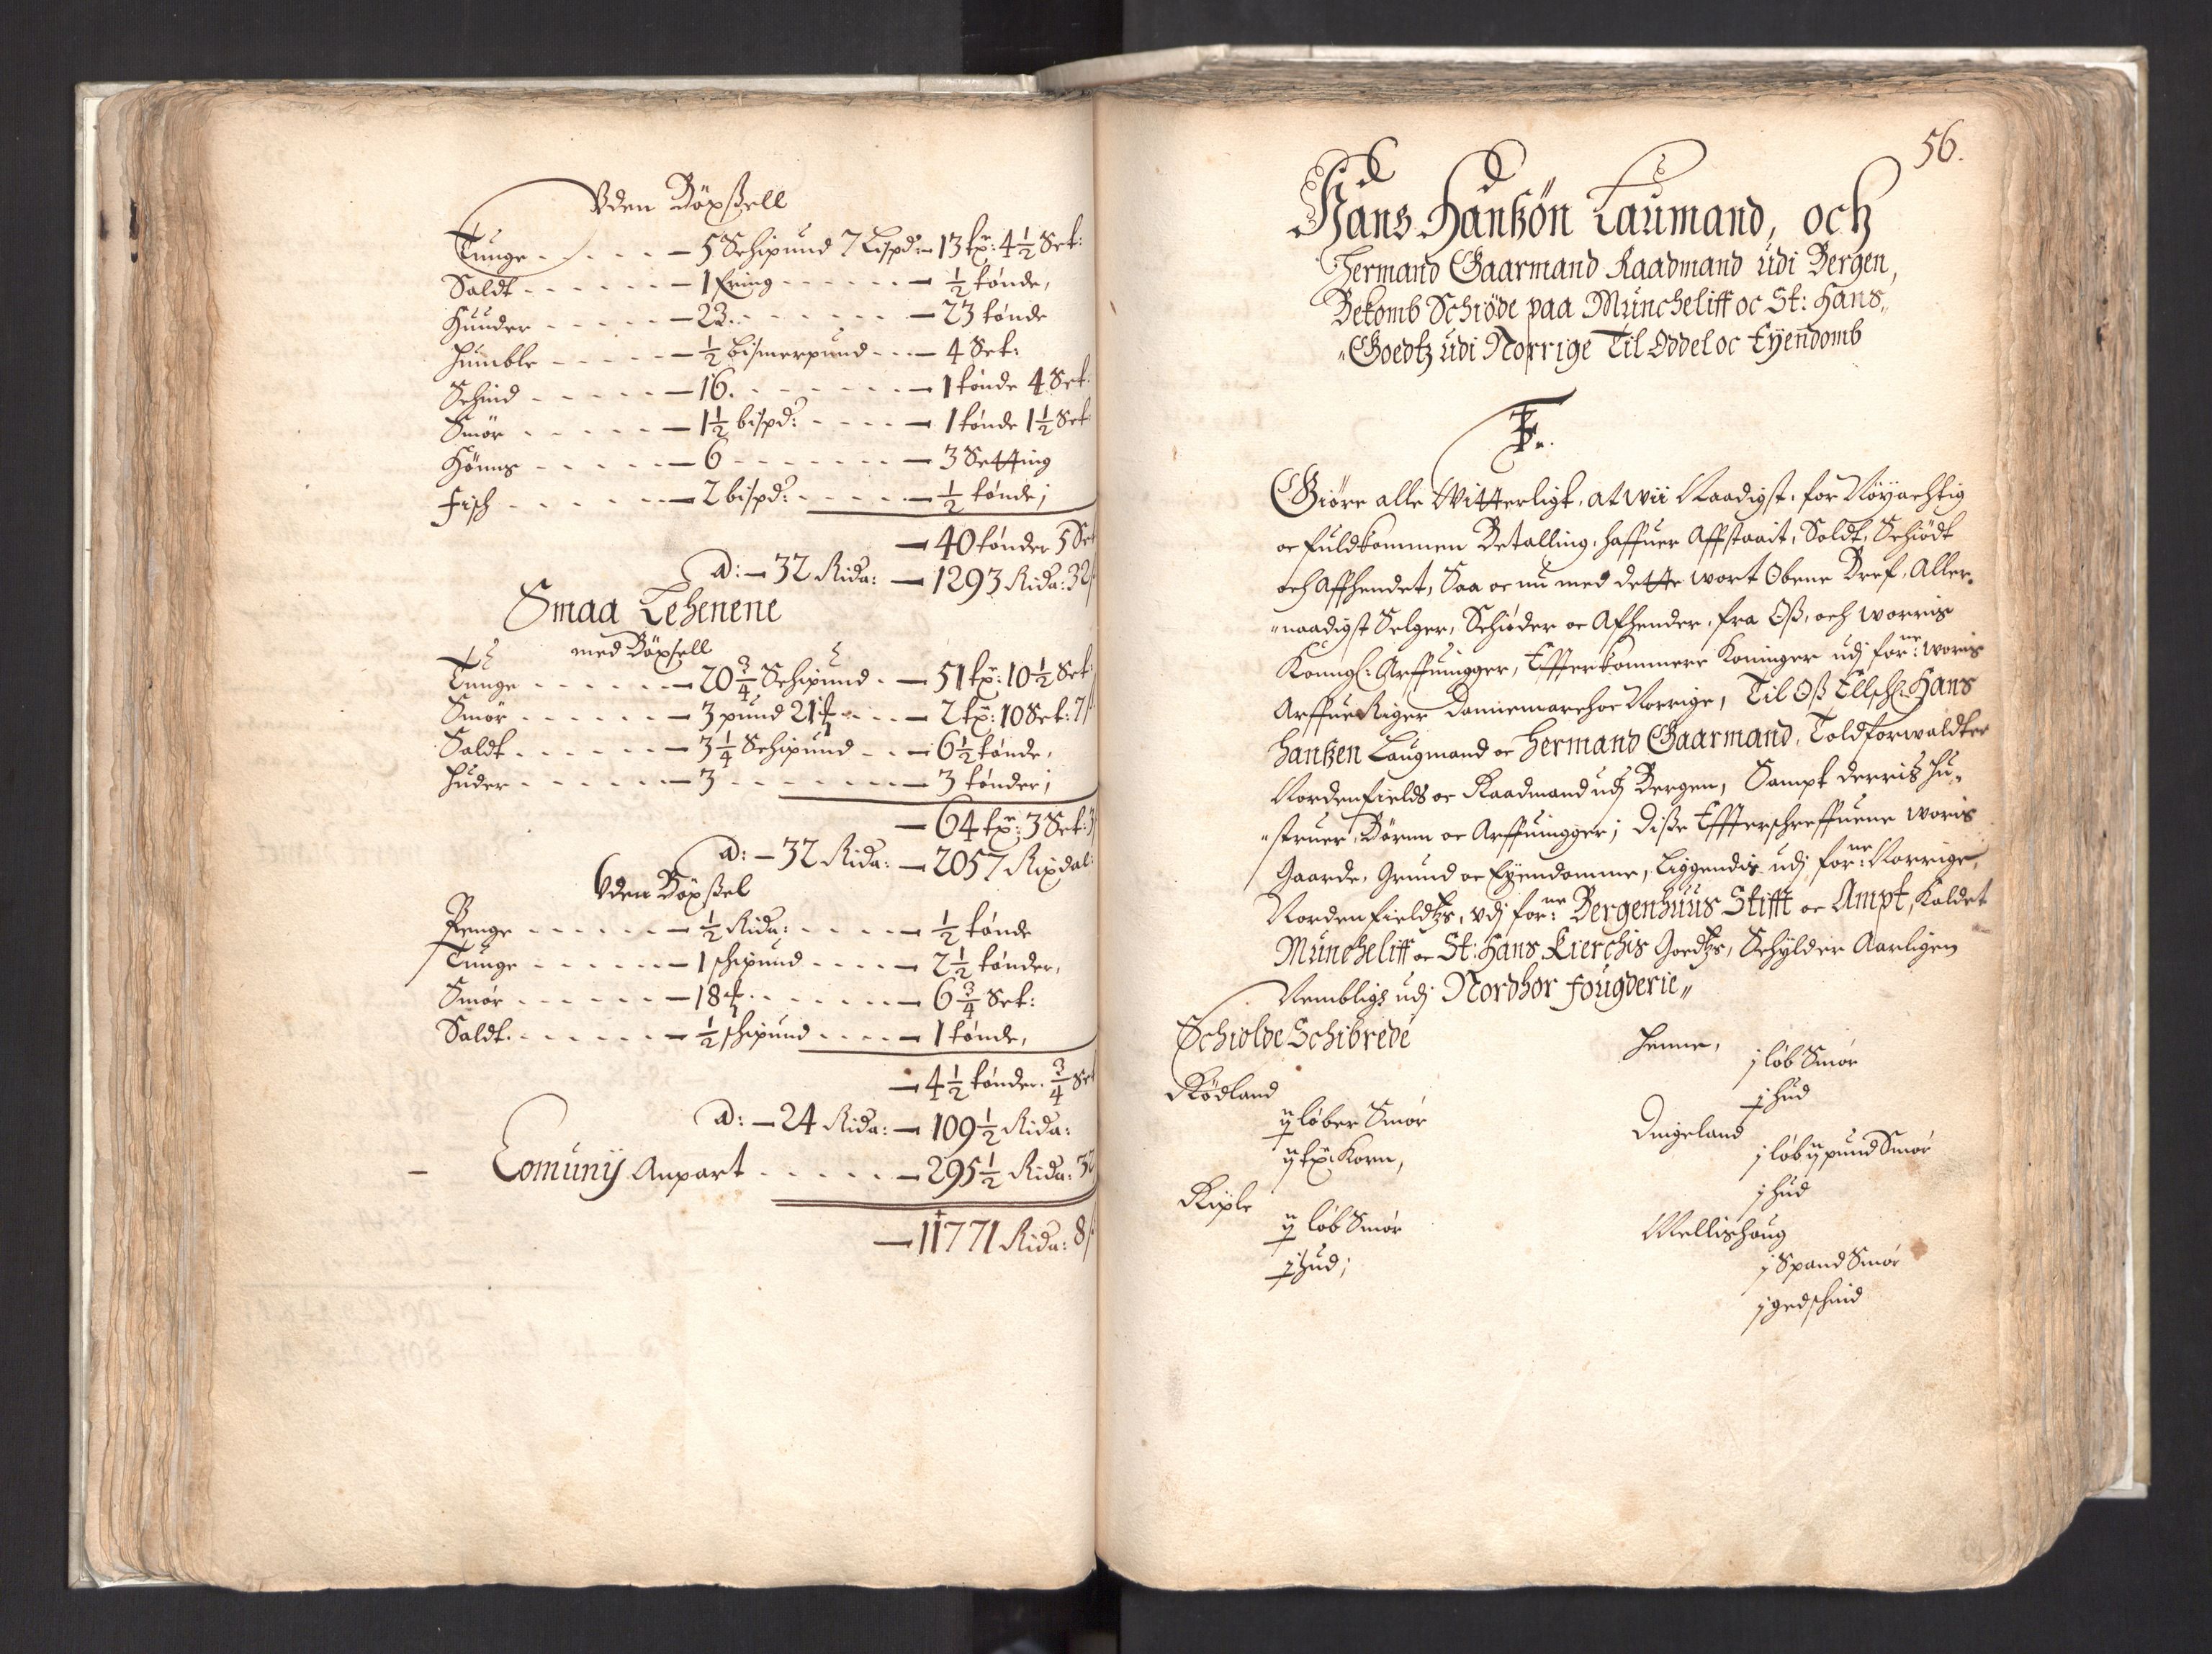 Vden Böxßell
Tunge - - - - - 5 Schipund 7 Lispd: - 13 tr: 4 1/2 Set:
Saldt - - - - - - 1 Ering - - - - - - 1/2 tønde,
Huuder - - - - - 23. - - - - - - 23 tønde
Humble - - - - - 1/2 bismerpund - - - 4 Set:
Schind - - - - - 16. - - - - - - 1 tønde 4 Set:
Smör - - - - - 1 1/2 bispd: - - - - 1 tønde 1 1/2 Set:
Hönns - - - - - 6 - - - - - - 3 Setting
fisch - - - - - 2 bispd: - - - - - 1/2 tønde;
40 tønder 5 Set
a: - 32 Rida: - 1293 Rida: 32
Smaa Lehenene
med Böxsell
Tunge - - - - - - 20 3/4 Schipund - - 51 tr: 10 1/2 Set
Smör - - - - - - 3 pund 21 - - - 2 tr: 10 Set: 7
Saldt - - - - - - 3 1/4 Schipund - - 6 1/2 tønde,
Huder - - - - - - 3 - - - - - - 3 tønder;
64 tr: 3 Set: 3
a: - 32 Rida: - 2057 Rixdal:
Vden Böxßel
Penge - - - - - - 1/2 Rida: - - - - - 1/2 tønde
Tunge - - - - - - 1 schipund - - - - 2 1/2 tønder,
Smör - - - - - - 18 - - - - - - 6 3/4 Set:
Saldt. - - - - - - 1/2 schipund - - - - 1 tønde,
4 1/2 tønder. 3/4 Set
a: - 24 Rida: - 109 1/2 Rida:
- Comunij Anpart - - - - - 295 1/2 Rida: 32
11771 Rida: 8
56.
Hans Hanßön Laumand, och
Hermand Gaarmand Raadmand udi Bergen,
Bekomb Schiöde paa Muncheliff oc St: Hans„
„Goedtz udi Norrige Til Oddel oc Eÿendomb
Giöre alle Witterligt, at wii Naadigst, for Nöyachtig
oc fuldkommen Betalling, haffuer Affstaait, Soldt, Schiödt
och Affhendet, Saa oc nu med dette wort Obene Bref, Aller„
„naadigst Selger, Schiöder oc Afhender, fra Oß, och worris
Kongl: Arffuingger, Efferkommere Koninger udj forne: woris
Arffue Riger Dannemarch oc Norrige, Til Oß Ellschl: Hans
Hanßen Laugmand oc Hermand Gaarmand, Toldforwaldter
Nordenfields oc Raadmand udj Bergen, Sampt derris Hu„
„struer, Börnn oc Arffuingger; Diße Effterschreffuene woris
Gaarde, Grund oc Eyendomme, Liggendis udj forne: Norrige,
Nordenfieldtzs, vdj forne: Bergenhuus Stifft oc Ampt, Kaldet
Muncheliff oc St: Hans Kierchis Goedtzs, Schylder Aarligen
Nembligs udj Nordhor fougderie„
Schiolde Schibrede
Rödland
ij löber Smör
ij tr: Korn,
Riple
ij löb Smör
j Hud;
Henne,
j löb Smör
j Hud
Dingeland
j löb ij pund Smör
j Hud
Mellishoug
j Spand Smör
j gedschind